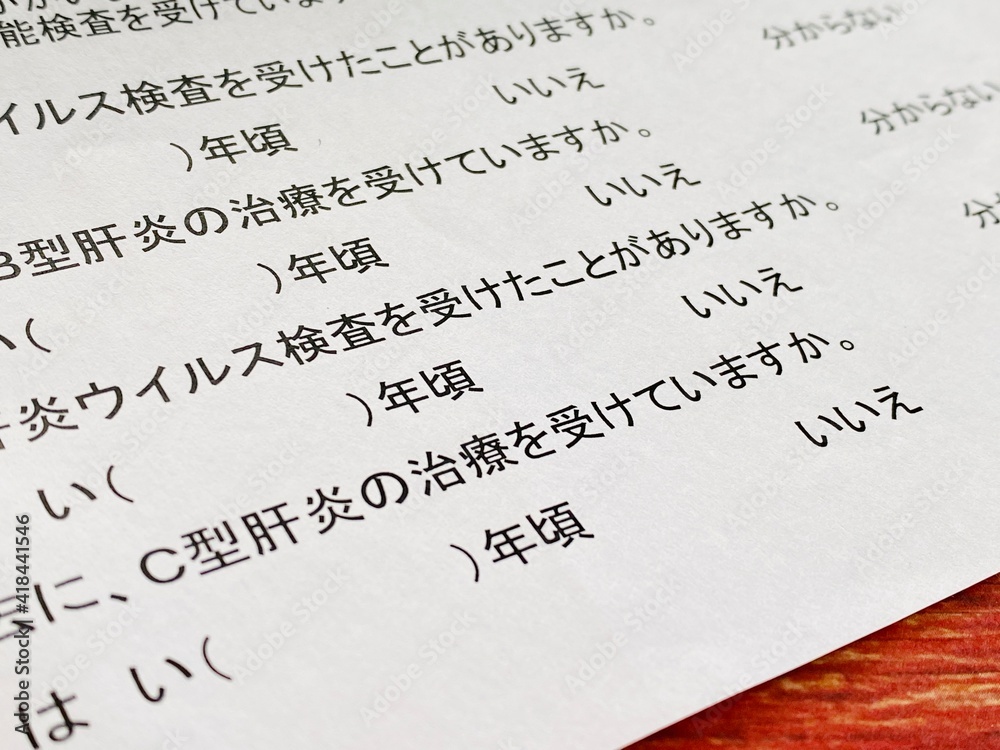 能検査を受けていま
イルス検査を受けたことがありますか。
)年頃 いいえ 分からない
B型肝炎の治療を受けていますか。
い( )年頃 いいえ 分からない
肝炎ウイルス検査を受けたことがありますか。
い( )年頃 いいえ 分
に、C型肝炎の治療を受けていますか。
はい( )年頃 いいえ
Adobe Stock | #418441546